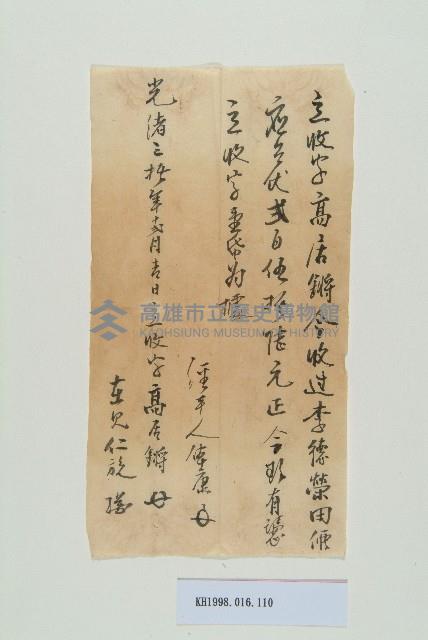 立收字高居鏘今收过李德榮田價
伏貳百伍拾陸元正今欲有憑
立收字壹帋為
經手人
光緒三拾年 月吉日立收字高居鏘
在見仁
高雄市立歷史博物館
KAOHSIUNG MUSEUM OF HISTORY
KH1998.016.110